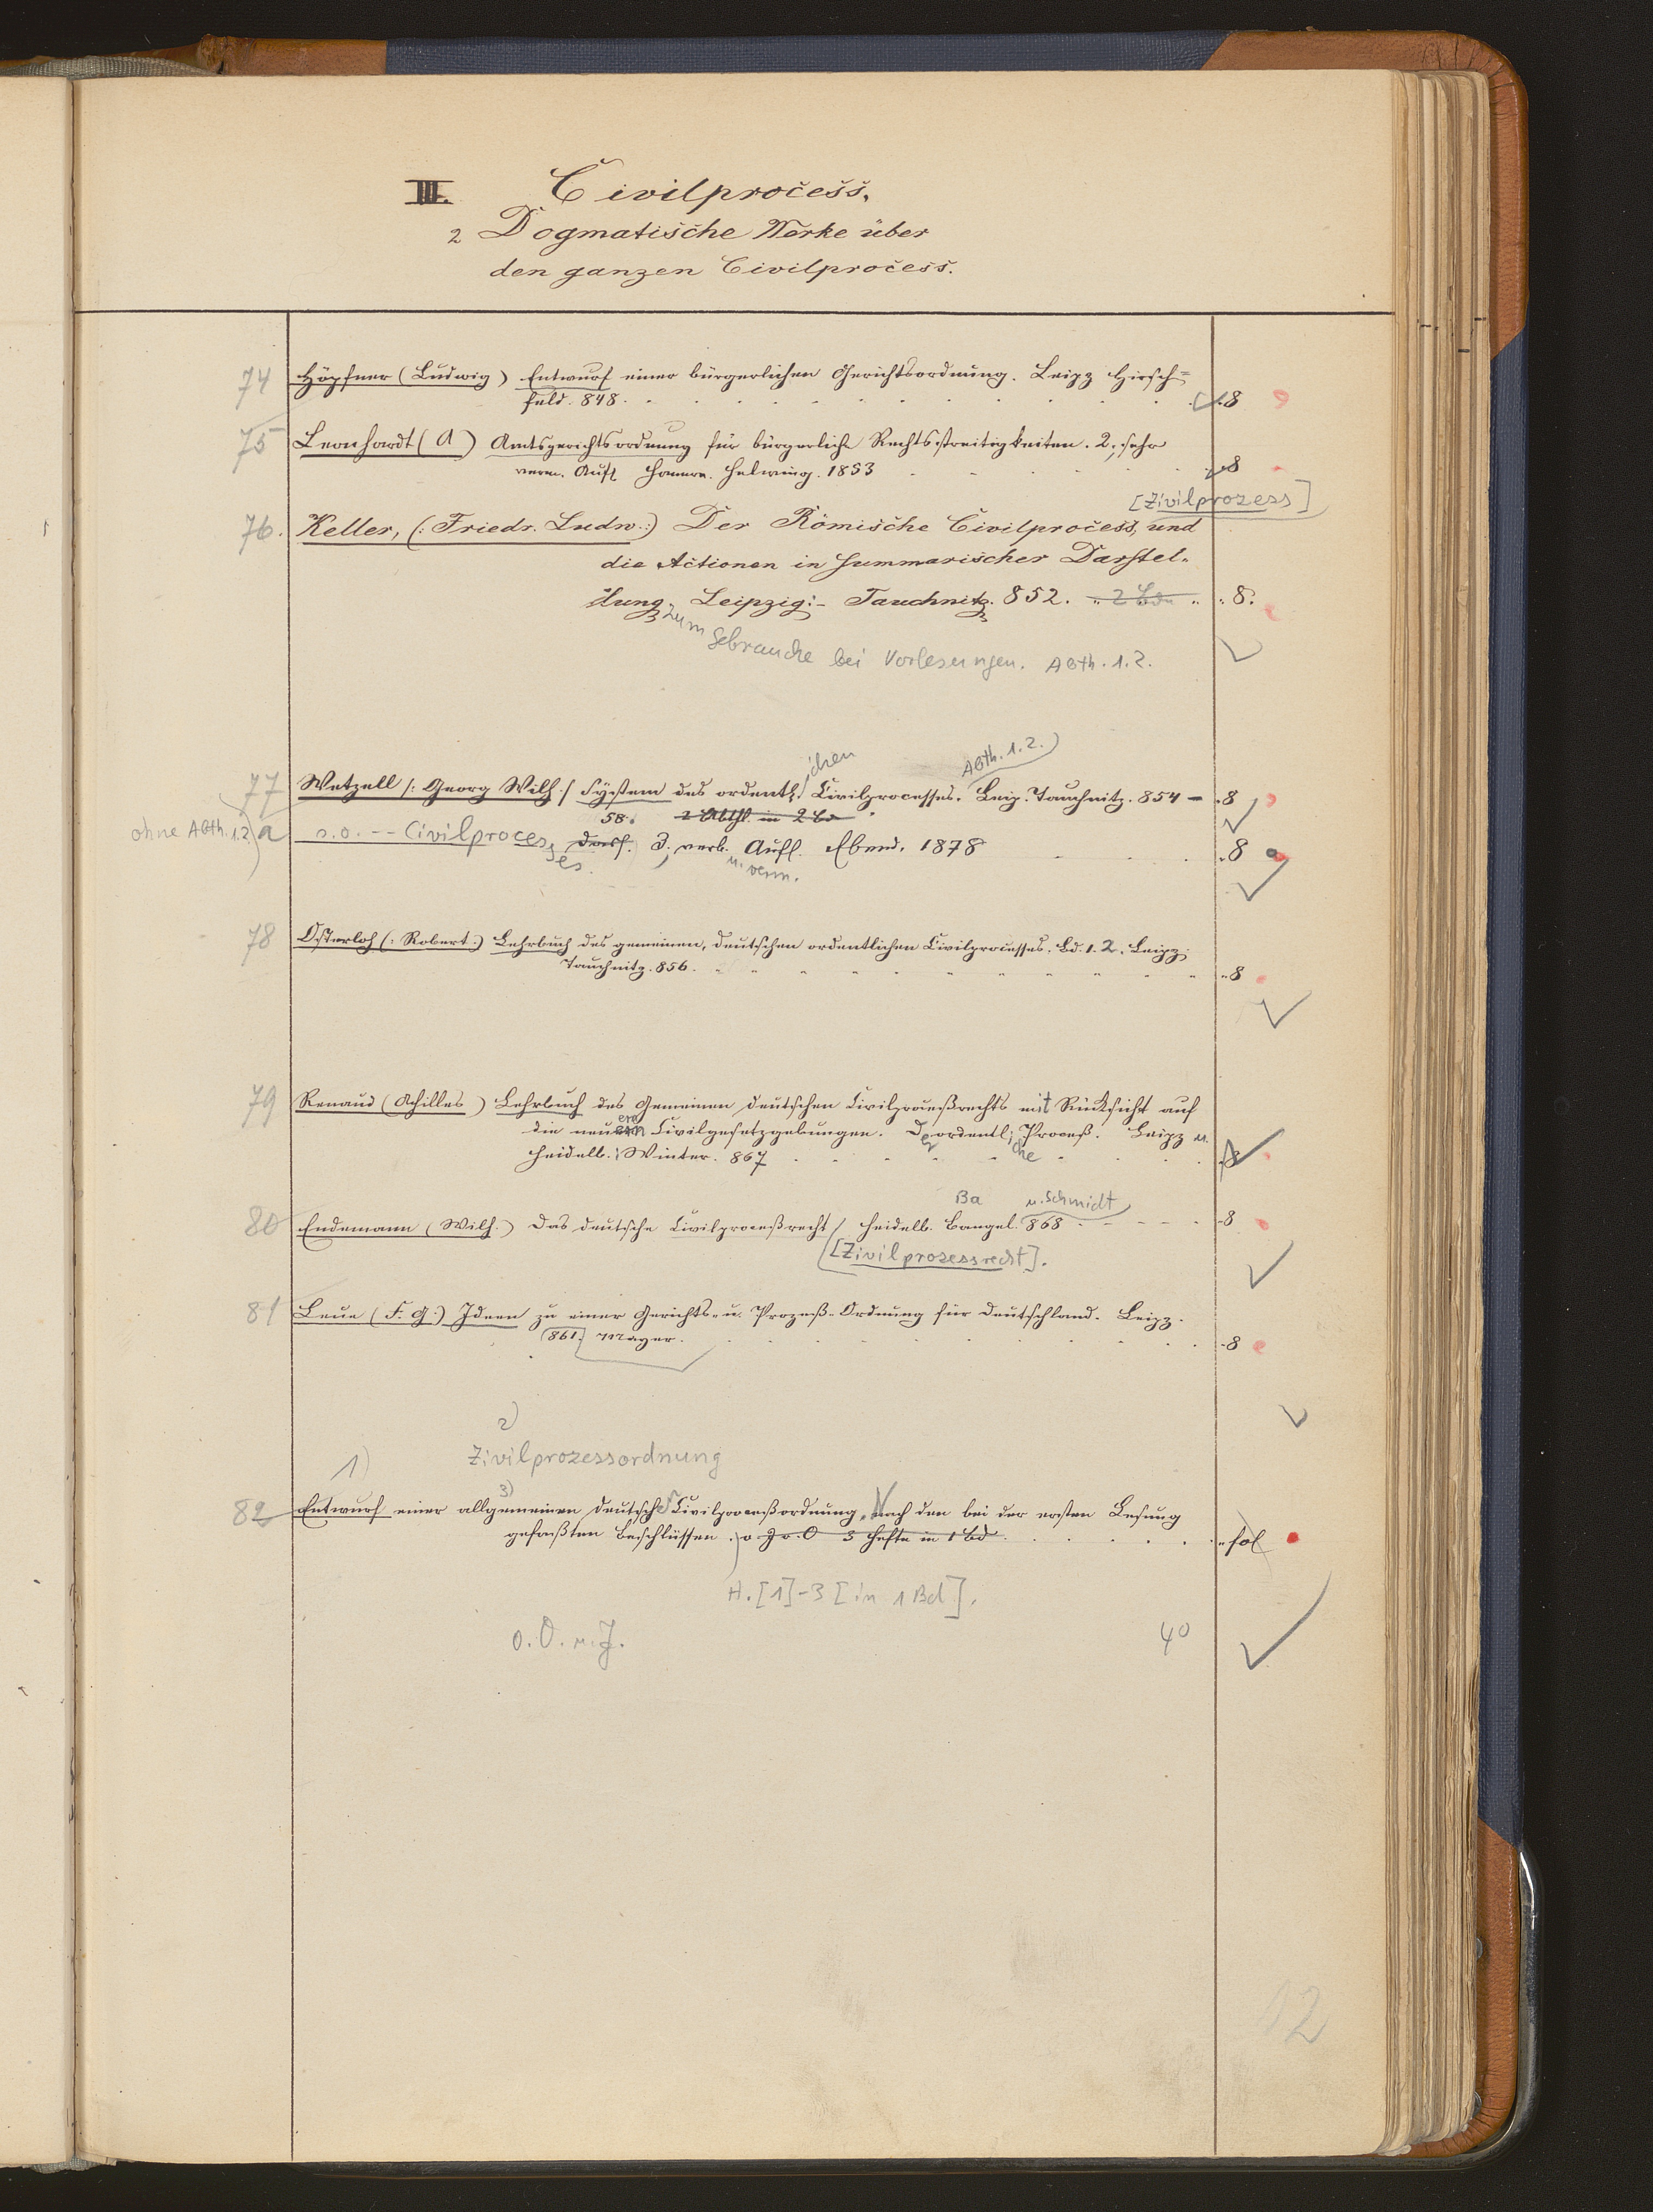 III. Civilprocess.
2 Dogmatische Werke über
den ganzen Civilprocess.
74 Höpfner (Ludwig) Entwurf einer bürgerlichen Gerichtsordnung. Leipz Hirsch=
feld. 848. 8
75 Leonhardt (A) Amtsgerichtsordnung für bürgerliche Rechtsstreitigkeiten. 2, sehr
verm. Aufl Hannov. Helwing. 1853 8
[Zivilprozess]
76. Keller, (: Friedr. Ludw. :) Der Römische Civilprocess, und
die Actionen in summarischer Darstel-
lung. Leipzig:- Tauchnitz. 852. 2 Bde 8.
zum Gebrauche bei Vorlesungen. Abth. 1.2.
ichen Abth. 1.2.
77 Wetzell /: Georg Wilh :/ System des ordentl. Civilprocesses. Leip. Tauchnitz. 854 - 8
58. 2 Abthl. in 2 Bd
ohne Abth. 1.2. a s.o. -- Civilprocesses. dass. 3. verb. Aufl. Ebend. 1878 8
u. verm.
78 Osterloh (: Robert :) Lehrbuch des gemeinen, deutschen ordentlichen Civilprocesses. Bd. 1. 2. Leipz:
Tauchnitz. 856. 8
79 Renaud (Achilles) Lehrbuch des Gemeinen deutschen Civilproceßrechts mit Rücksicht auf
die neuern Civilgesetzgebungen. Der ordentl. Proceß. Leipz u.
ere che
Heidelb. Winter. 867 8
Ba u. Schmidt
80 Endemann (Wilh.) Das deutsche Civilproceßrecht Heidelb. Bangel. 868 8
[Zivilprozessrecht].
81 Leue (F. G.) Ideen zu einer Gerichts- u. Prozeß-Ordnung für Deutschland. Leipz.
861. Mayer. 8
2)
1) Zivilprozessordnung
3)
82 Entwurf einer allgemeinen deutschen Civilproceßordnung, Nach den bei der ersten Lesung
gefaßten Beschlüssen. o J u. O 3 Hefte in 1 Bd fol
H. [1]-3 [in 1 Bd].
o. O. u. J. 40
12